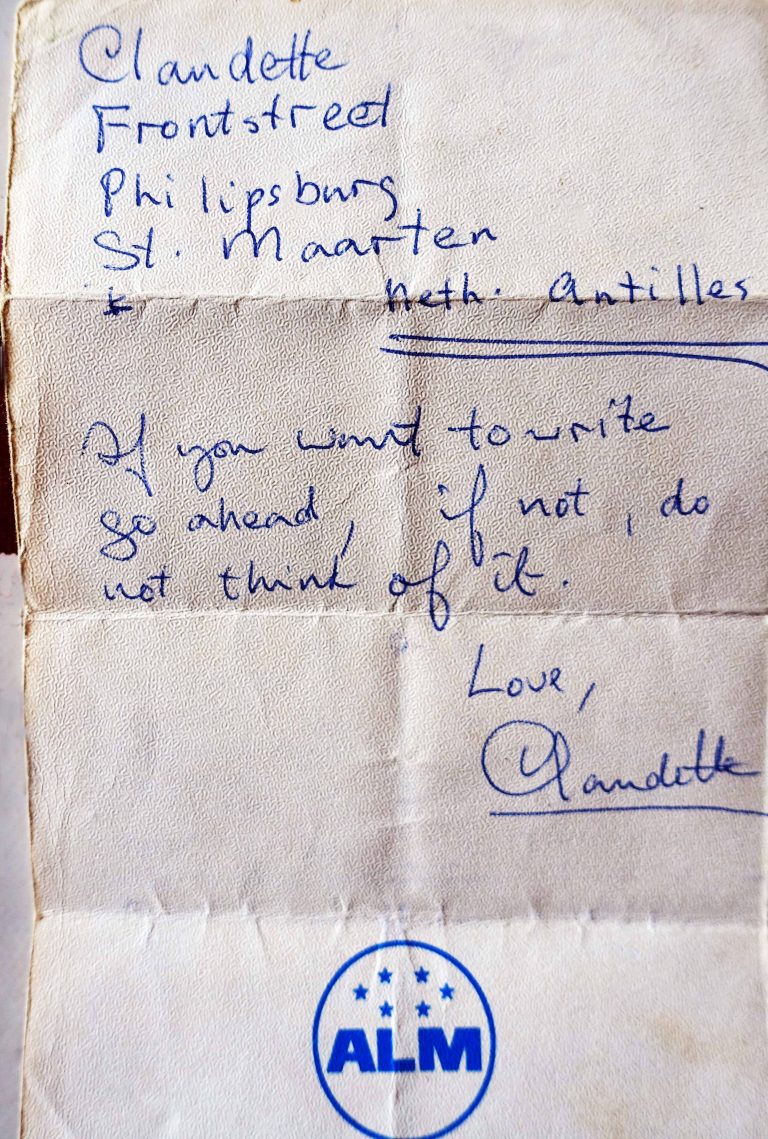 Claudette
Frontstreet
Philipsburg
St. Maarten
Neth. Antilles
If you want to write
go ahead, if not, do
not think of it.
Love,
Claudette
ALM